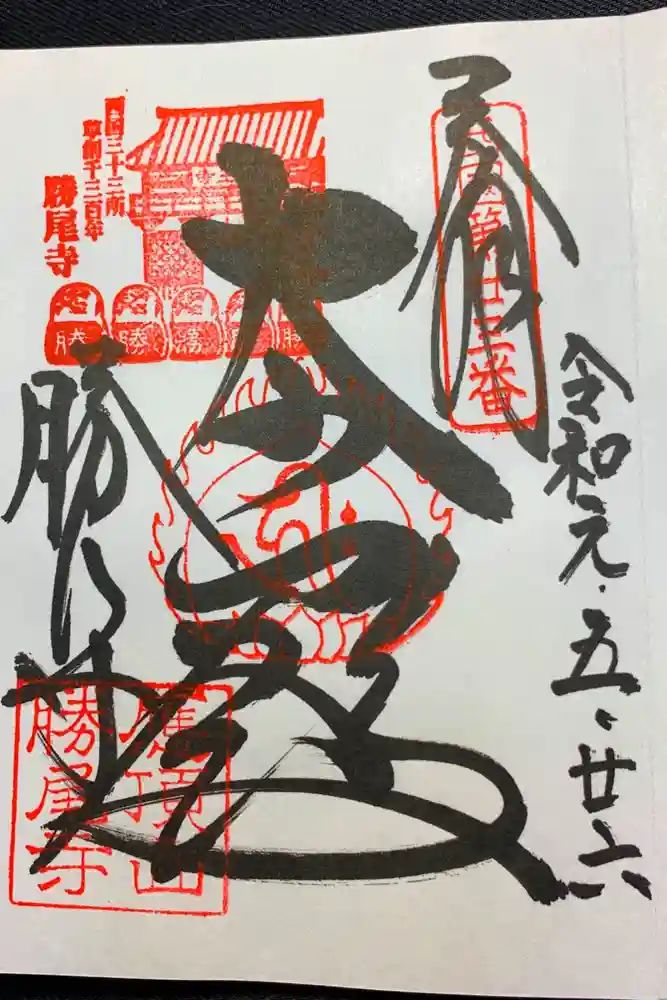 奉拝
西国第廿三番
令和元・五、廿六
大悲殿
西国三十三所
草創千三百年
勝尾寺
勝
勝
勝
勝
勝
勝尾寺
應頂山
勝尾寺